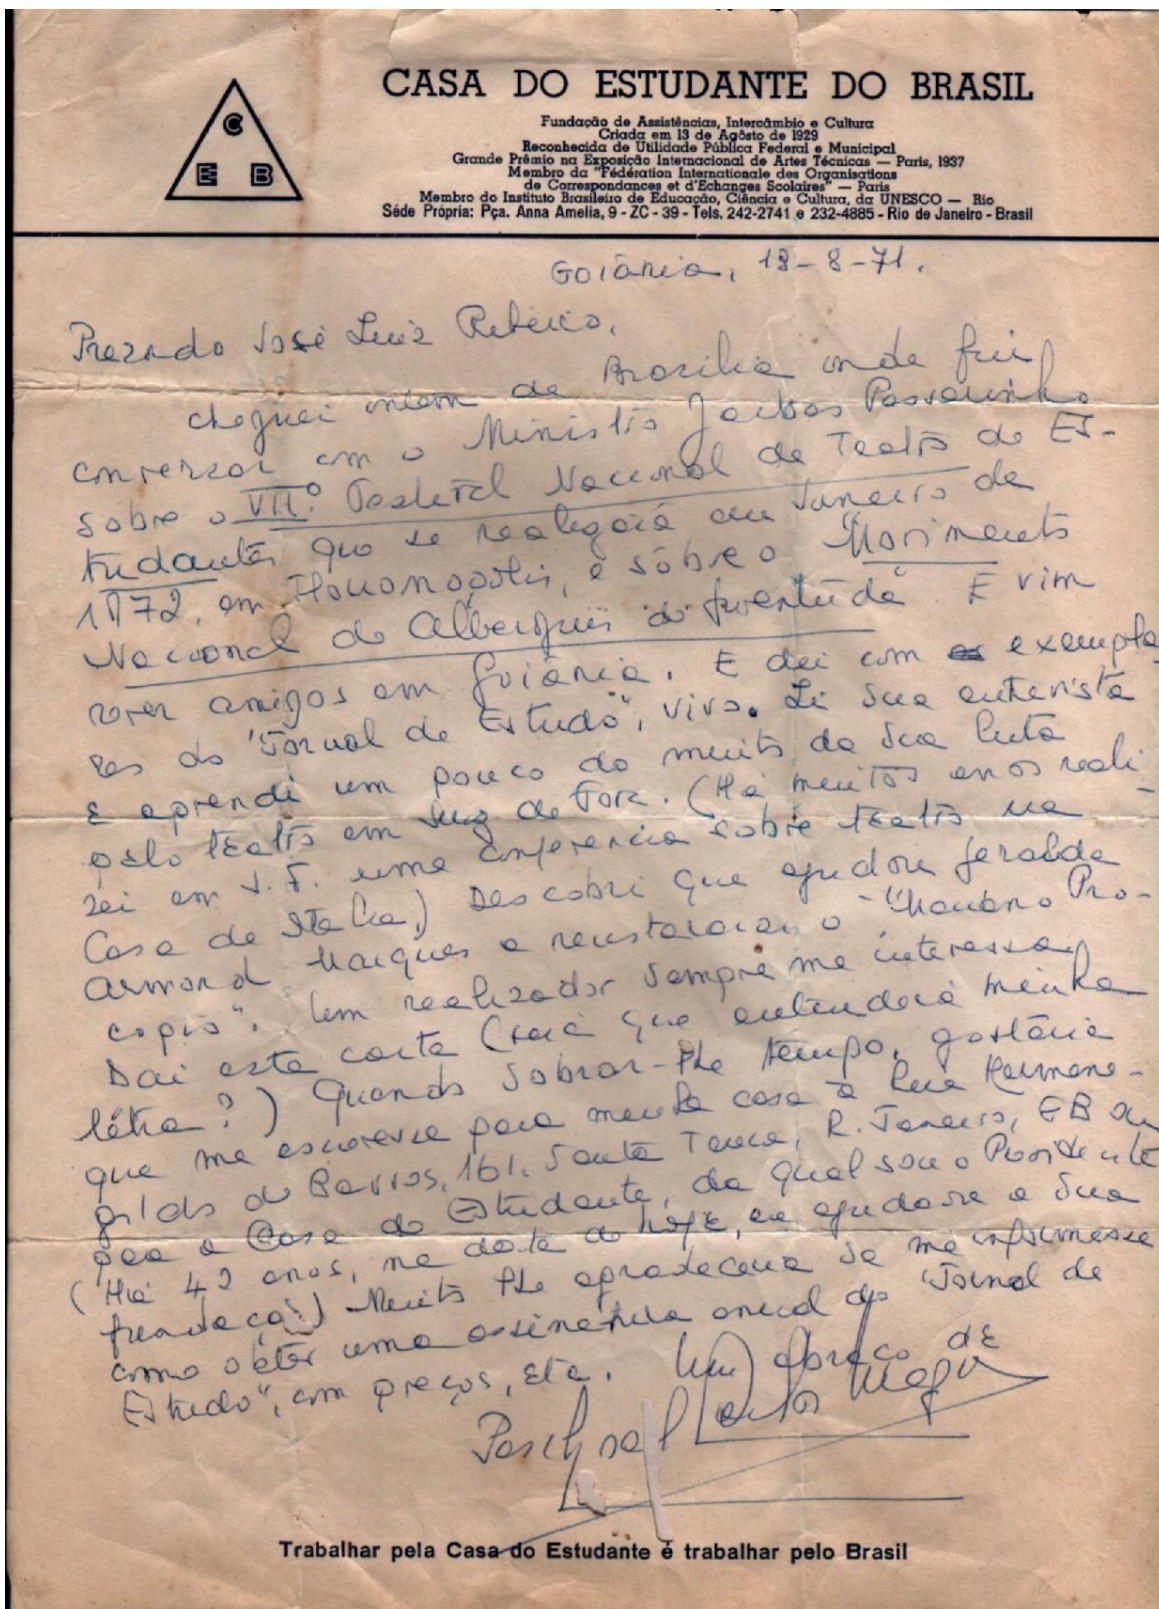 C
E B
CASA DO ESTUDANTE DO BRASIL
Fundação de Assistências, Intercâmbio e Cultura
Criada em 13 de Agôsto de 1929
Reconhecida de Utilidade Pública Federal e Municipal
Grande Prêmio na Exposição Internacional de Artes Técnicas — Paris, 1937
Membro da "Fédération Internationale des Organisations
de Correspondances et d'Echanges Scolaires" — Paris
Membro do Instituto Brasileiro de Educação, Ciência e Cultura, da UNESCO — Rio
Séde Própria: Pça. Anna Amelia, 9 - ZC - 39 - Tels. 242-2741 e 232-4885 - Rio de Janeiro - Brasil
Goiânia, 13-8-71.
Prezado José Luiz Ribeiro,
cheguei ontem de Brasília onde fui
conversar com o Ministro Jarbas Passarinho
sobre o VIIº Festival Nacional de Teatro de Es-
tudantes que se realizará em Janeiro de
1972, em Florianópolis, e sôbre o "Movimento
Nacional de Albergues da Juventude" E vim
rever amigos em Goiânia. E dei com exempla-
res do "Jornal de Estudo", vivo. Li sua entrevista
e aprendi um pouco do muito da sua luta
pelo teatro em Juiz de Fora. (Há muitos anos reali-
zei em J. F. uma conferencia sobre teatro na
Casa de Italia) Descobri que ajudou Geraldo
Armond Marques a reinstalar o "Mariano Pro-
copio". Um realizador sempre me interessa,
Dai esta carta (será que entenderá minha
létra?) Quando sobrar-lhe tempo, gostaria
que me escrevesse para minha casa à Rua Hermene-
gildo de Barros, 161. Santa Teresa, R. Janeiro, GB ou
para a Casa do Estudante, da qual sou o Presidente
(Há 42 anos, na data de hoje, eu ajudava a sua
fundação) Muito lhe agradeceria se me informasse
como obter uma assinatura anual do "Jornal de
Estudo", com preços, etc. Um abraço de
Paschoal Carlos Magno
Trabalhar pela Casa do Estudante é trabalhar pelo Brasil